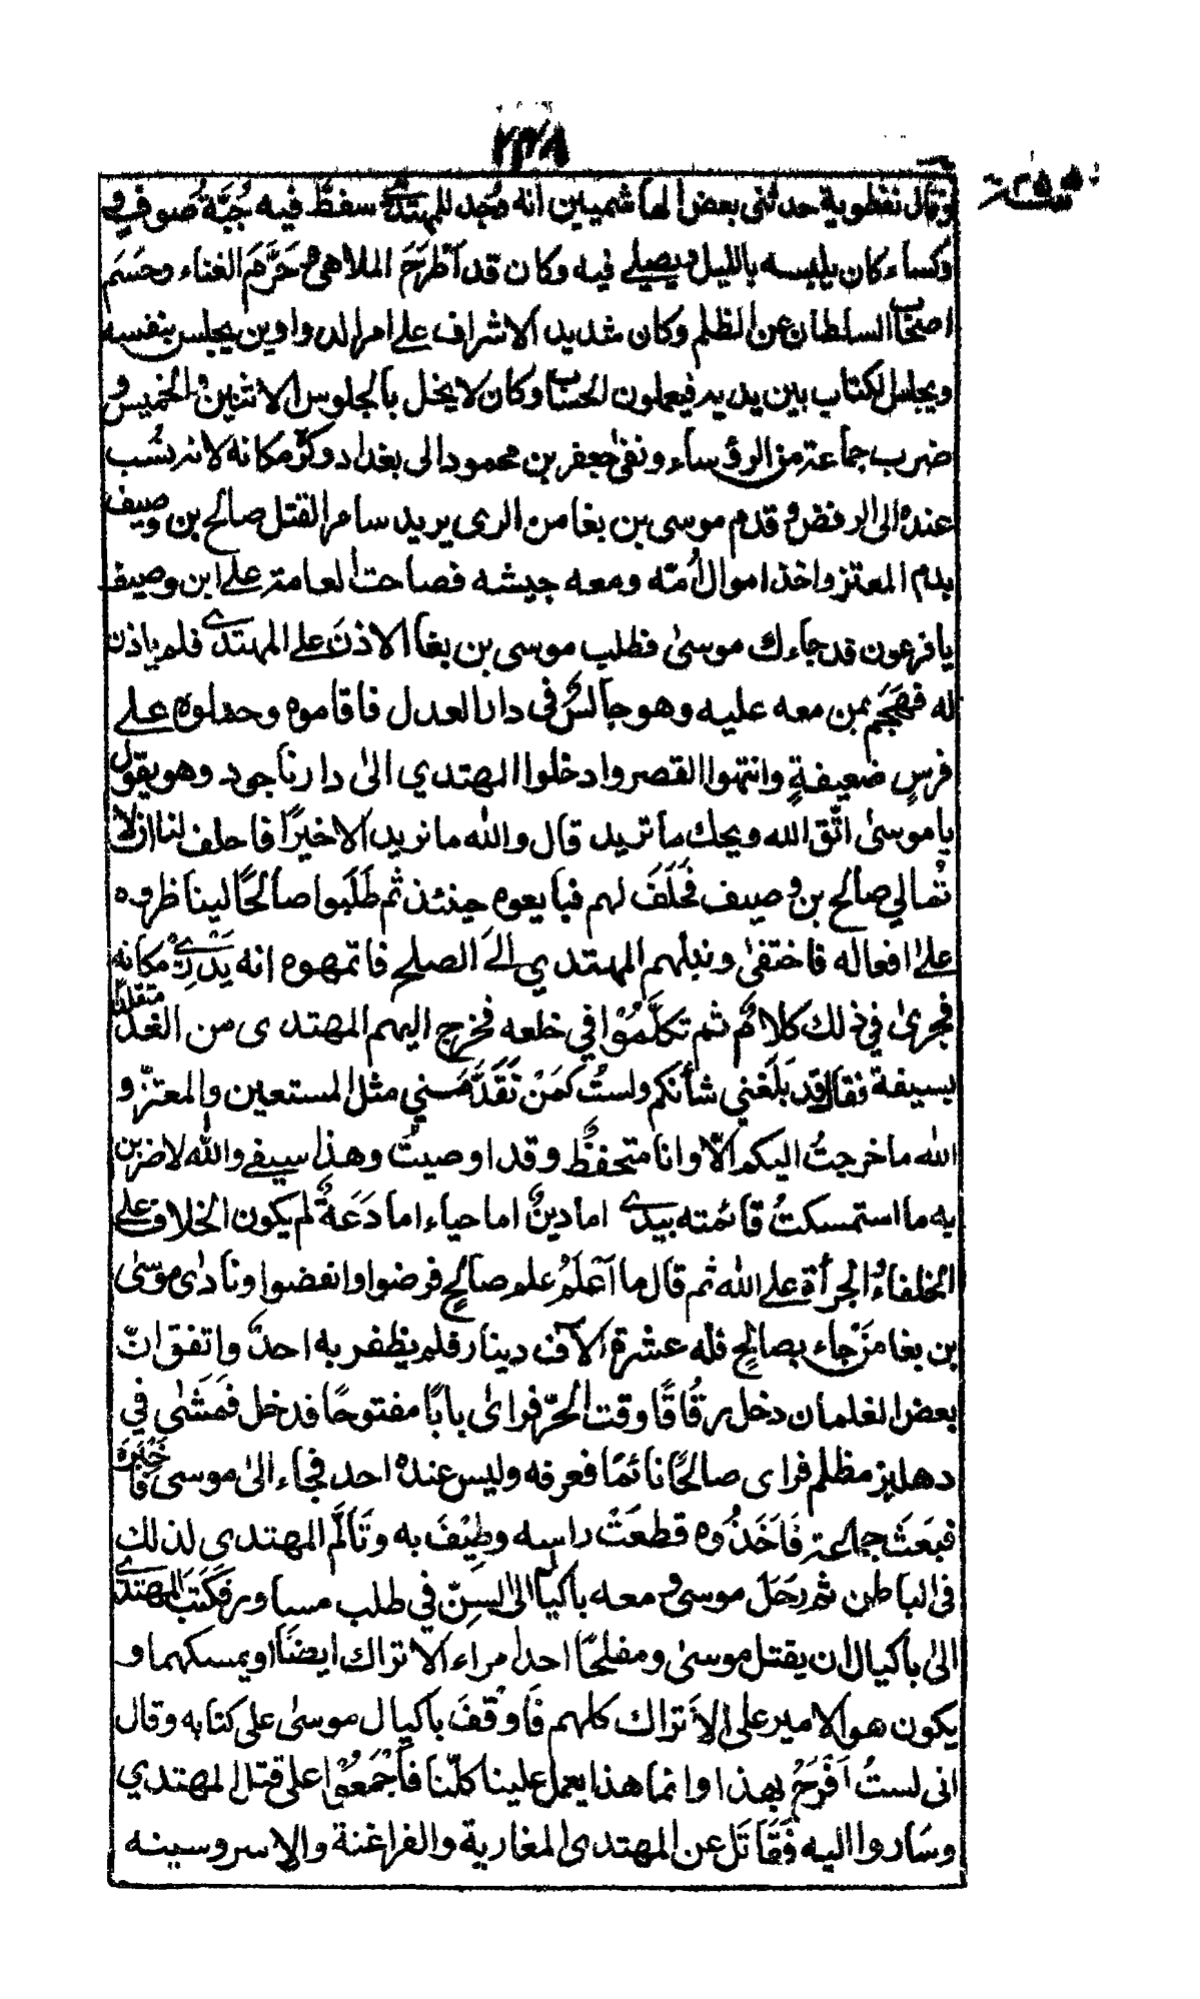 ٢٣٨
وقال نفطوية حدثنى بعض الهاشميين انه وُجد للمهتدى سفطٌ فيه جُبَّة صُوف و
وكساء كان يلبسه بالليل ويصلے فيه وكان قد اَطْرَحَ الملاهى و حَرَّم الغناء وحَسَم
اصحاب السلطان عن الظلم وكان شديد الاشراف علے امر الدواوين يجلس بنفسه
ويجلس الكتاب بين يديه فيعملون الحساب وكان لا يخل بالجلوس الاثنين والخميس و
ضرب جماعة من الرؤساء ونفىٰ جعفر بن محمود الى بغداد وكرّه مكانه لانه نسُب
عنده الى الرفض و قدم موسى بن بغا من الرى يريد سامرا لقتل صالح بن وصيف
بدم المعتز واخذ اموال اُمّه ومعه جيشه فصاحت العامة علے ابن وصيف
يا فرعون قد جاءك موسىٰ فطلب موسى بن بغا الاذنَ علے المهتدے فلم ياذن
له فهَجَم بمن معه عليه وهو جالسٌ فى دار العدل فاقاموه وحملوه علے
فرسٍ ضعيفةٍ وانتهوا القصر وادخلوا المهتدي الىٰ دار ناجود وهو يقول
يا موسىٰ اتّق الله ويحك ما تريد قال والله ما نريد الا خيرًا فاحلف لنا ان لا
تُمالي صالح بن وصيف فحَلَفَ لهم فبايعوه حينئذ ثم طَلَبوا صالحًا ليناظروه
علےٰ افعاله فاختفىٰ وندبهم المهتدي الےٰ الصلح فاتهموه انه يَدْرِے مكانه
فجرىٰ في ذلك كلامٌ ثم تكلَّمُوْا في خلعه فخرج اليهم المهتدى من الغد متقلدًا
بسيفة فقال قد بَلَغني شأنكم ولستُ كَمَنْ تَقَدَّمَني مثل المستعين والمعتزّ و
الله ما خرجتُ اليكم اِلّا وانا متحفظٌ وقد اوصيت وهذا سيفے والله لاضربن
به ما استمسكتُ قائمته بيدے اما دينٌ اما حياء اما دَعَةٌ لم يكون الخلاف علے
الخلفاء والجرأة علے الله ثم قال ما اَعْلَمُ علم صالحٍ فرضوا وانفضوا ونادٰى موسىٰ
بن بغا مَنْ جاء بصالحٍ فله عشرة الآف دينار فلم يظفر به احدٌ واتفق انّ
بعض الغلمان دخل زُقاقًا وقت الحرّ فراىٰ بابًا مفتوحًا فدخل فَمَشٰى في
دهليز مظلم فراى صالحًا نائمًا فعرفه وليس عنده احد فجاء الىٰ موسىٰ فاَخْبَرَه
فبَعَثَ جماعة فَاَخَذُوه قطعَتْ راسه وطِيْفَ به وتَالَّم المهتدى لذلك
فى الباطن ثم رَحَلَ موسىٰ و معه باكيال الىٰ السِنّ في طلب مساور فَكَتَبَ المهتدے
الىٰ باكيال ان يقتل موسىٰ ومفلحًا احد امراء الاتراك ايضًا او يمسكهما و
يكون هو الامير على الاَتراك كلهم فَاَوْقفَ باكيال موسىٰ على كتابه وقال
انى لستُ اَفْرَحُ بهذا وانما هذا يعمل علينا كلّنا فاَجْمَعُوْا على قتل المهتدي
وسَاروا اليه فَقَاتَل عن المهتدى المغاربة والفراغنة والاسروسينه